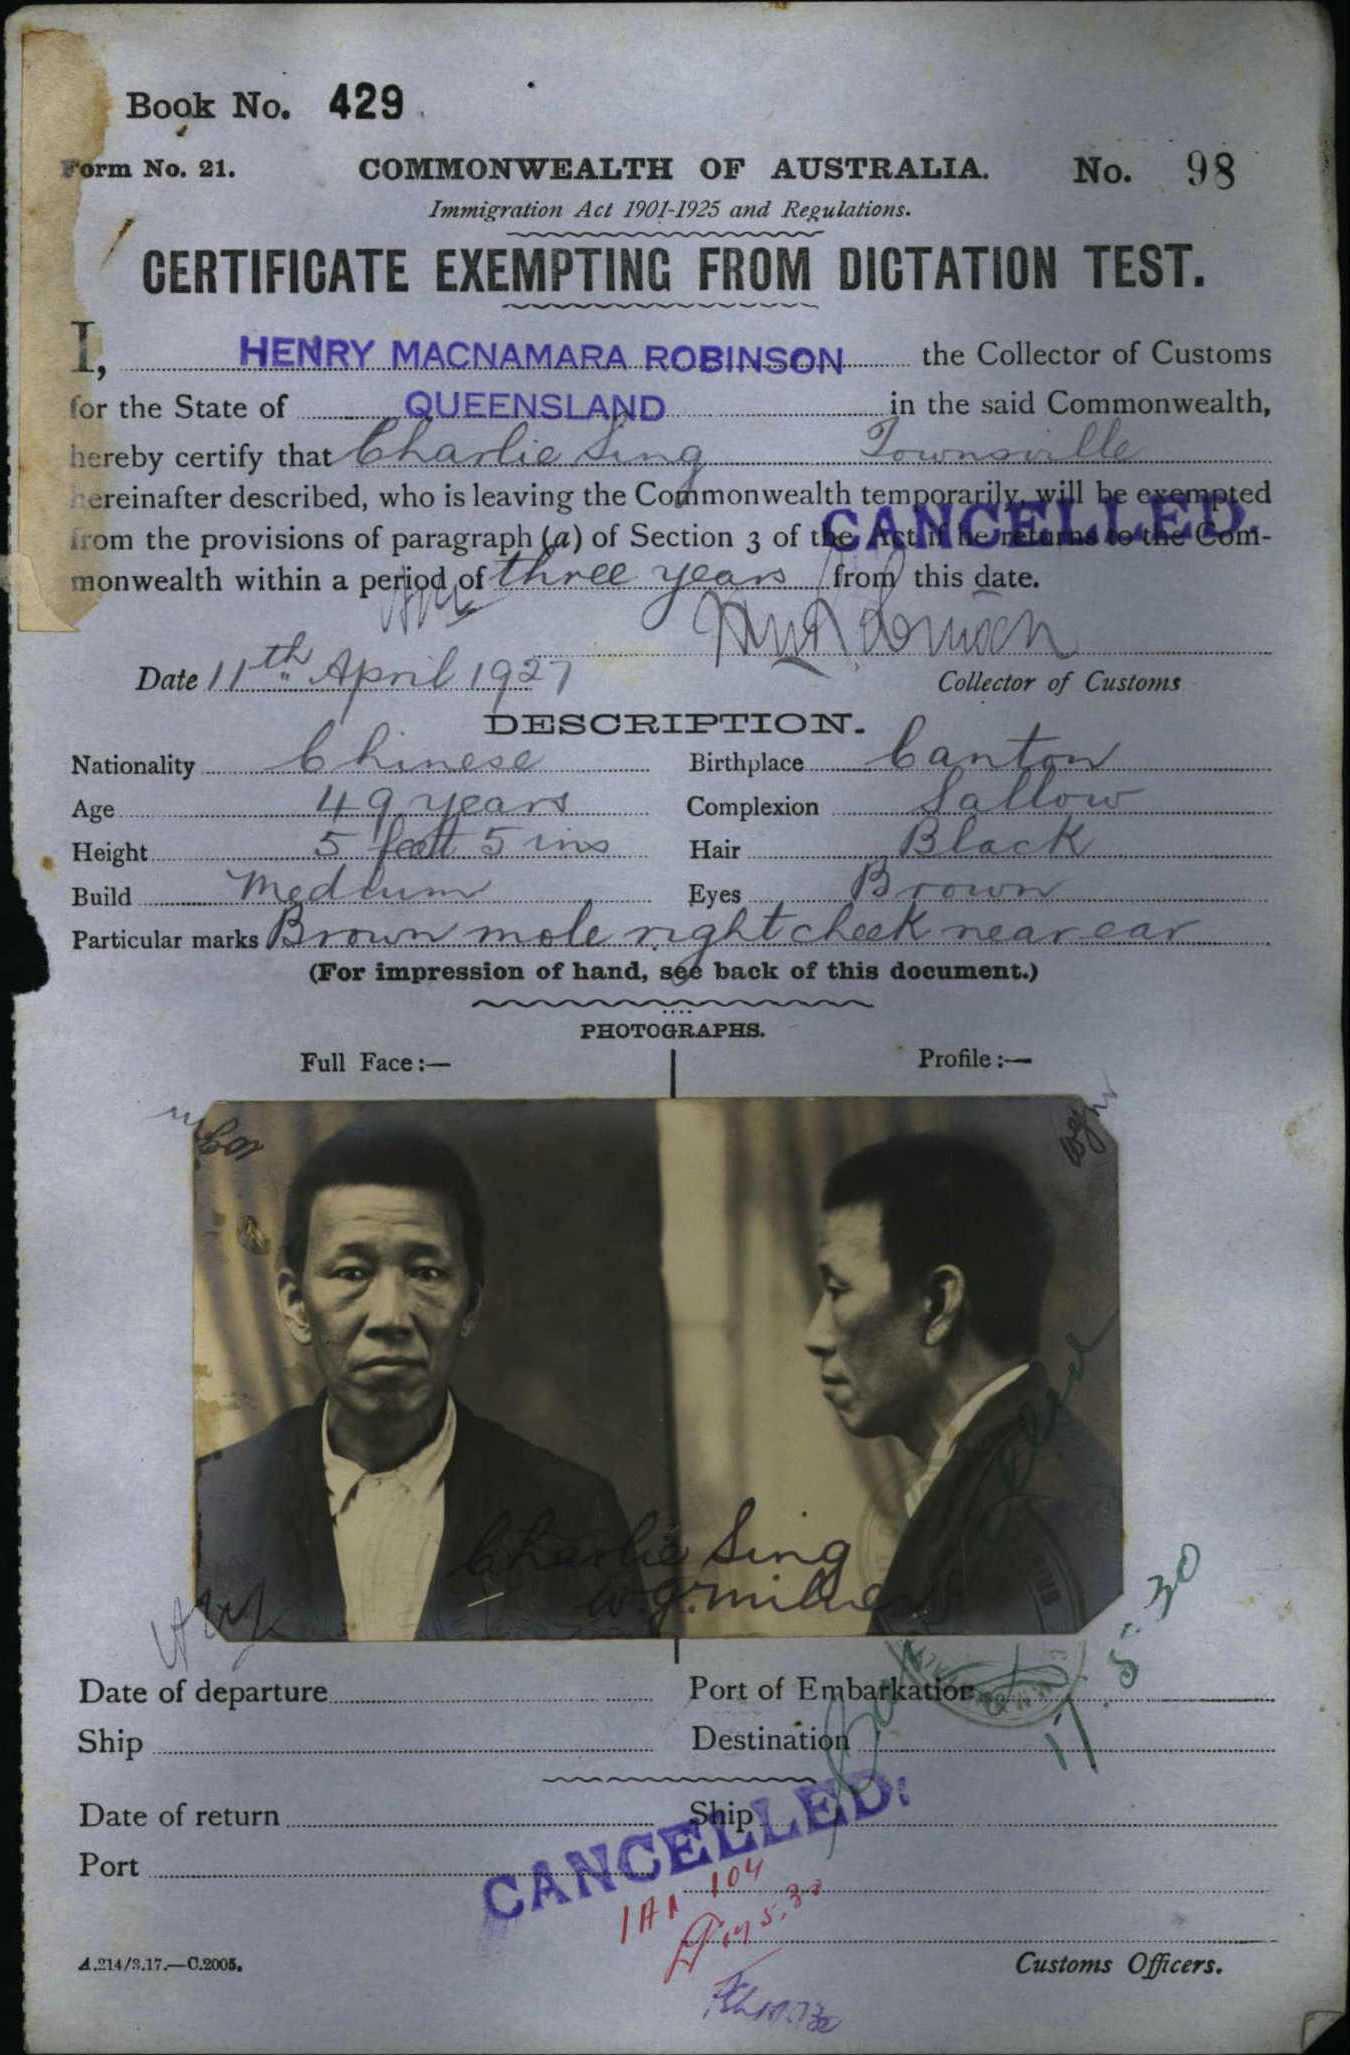 Book No. 429
Form No. 21. COMMONWEALTH OF AUSTRALIA. No. 98
Immigration Act 1901-1925 and Regulations.
CERTIFICATE EXEMPTING FROM DICTATION TEST.
I, HENRY MACNAMARA ROBINSON the Collector of Customs
for the State of QUEENSLAND in the said Commonwealth,
hereby certify that Charlie Sing Townsville
hereinafter described, who is leaving the Commonwealth temporarily, will be exempted
CANCELLED.
from the provisions of paragraph (a) of Section 3 of the Act if he returns to the Com-
monwealth within a period of three years from this date.
Date 11th April 1927 Collector of Customs
DESCRIPTION.
Nationality Chinese Birthplace Canton
Age 49 years Complexion Sallow
Height 5 feet 5 ins Hair Black
Build Medium Eyes Brown
Particular marks Brown mole right cheek near ear
(For impression of hand, see back of this document.)
PHOTOGRAPHS.
Full Face:— Profile:—
Charlie Sing
W.G. Milner
17.5.30
Date of departure Port of Embarkation
Ship Destination
Date of return Ship
CANCELLED.
Port
104
A.214/3.17.—C.2005. Customs Officers.